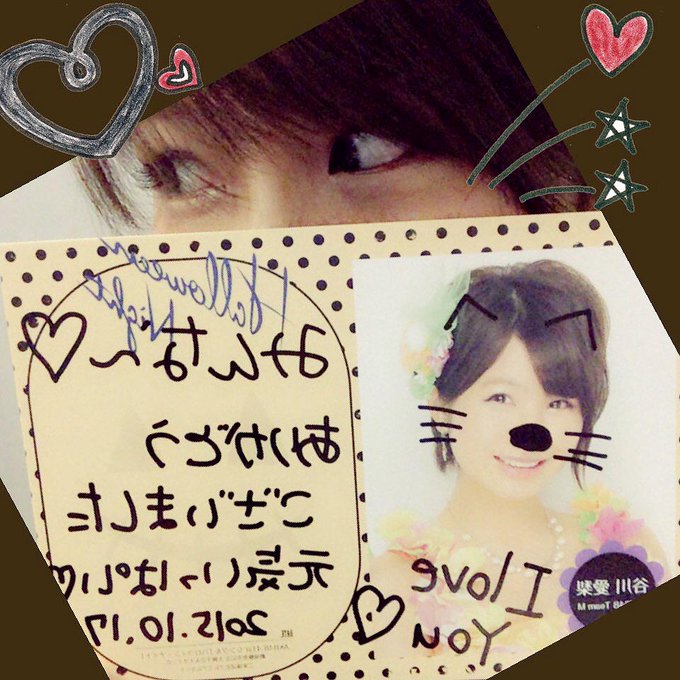 Halloween
Night
みんなへ
ありがとう
ございました
元気いっぱい
2015.10.17
I love
You
谷川 愛梨
Team M